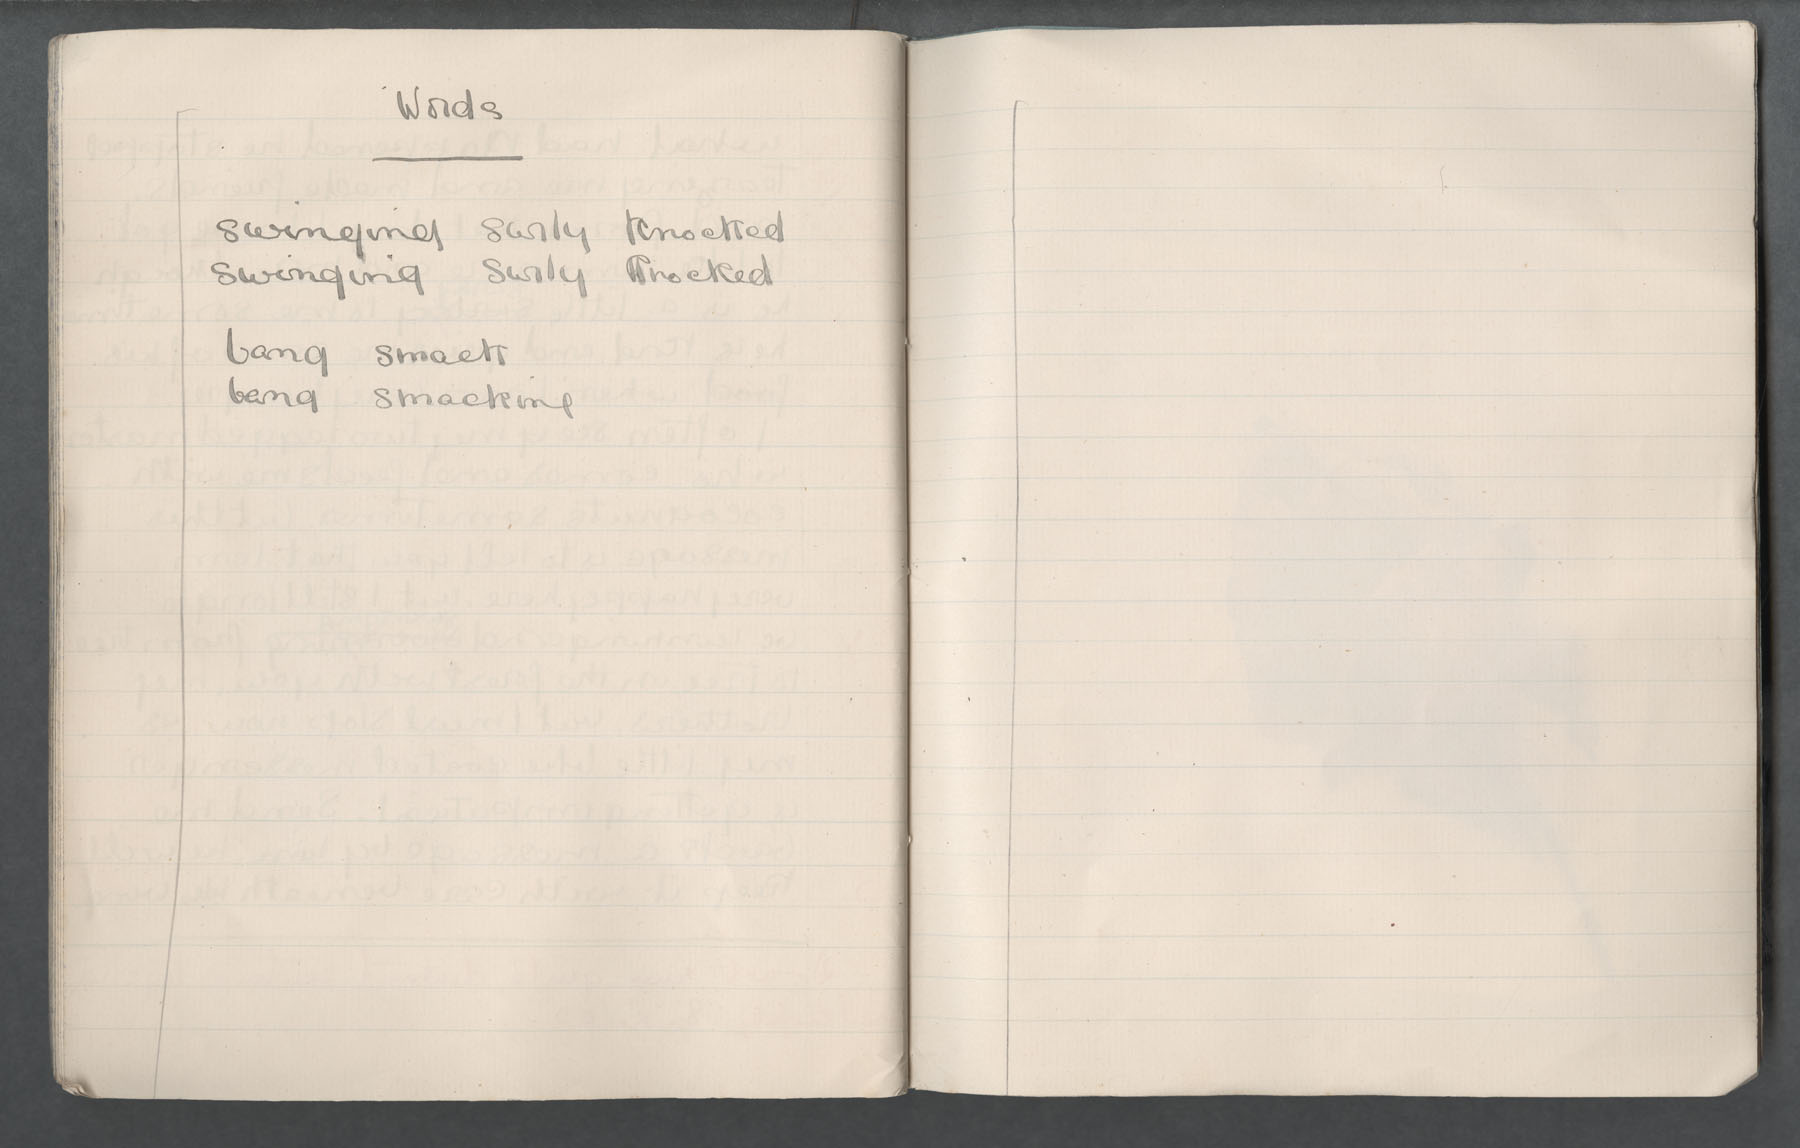 Words
swinging surly knocked
swinging surly knocked
bang smack
bang smacking